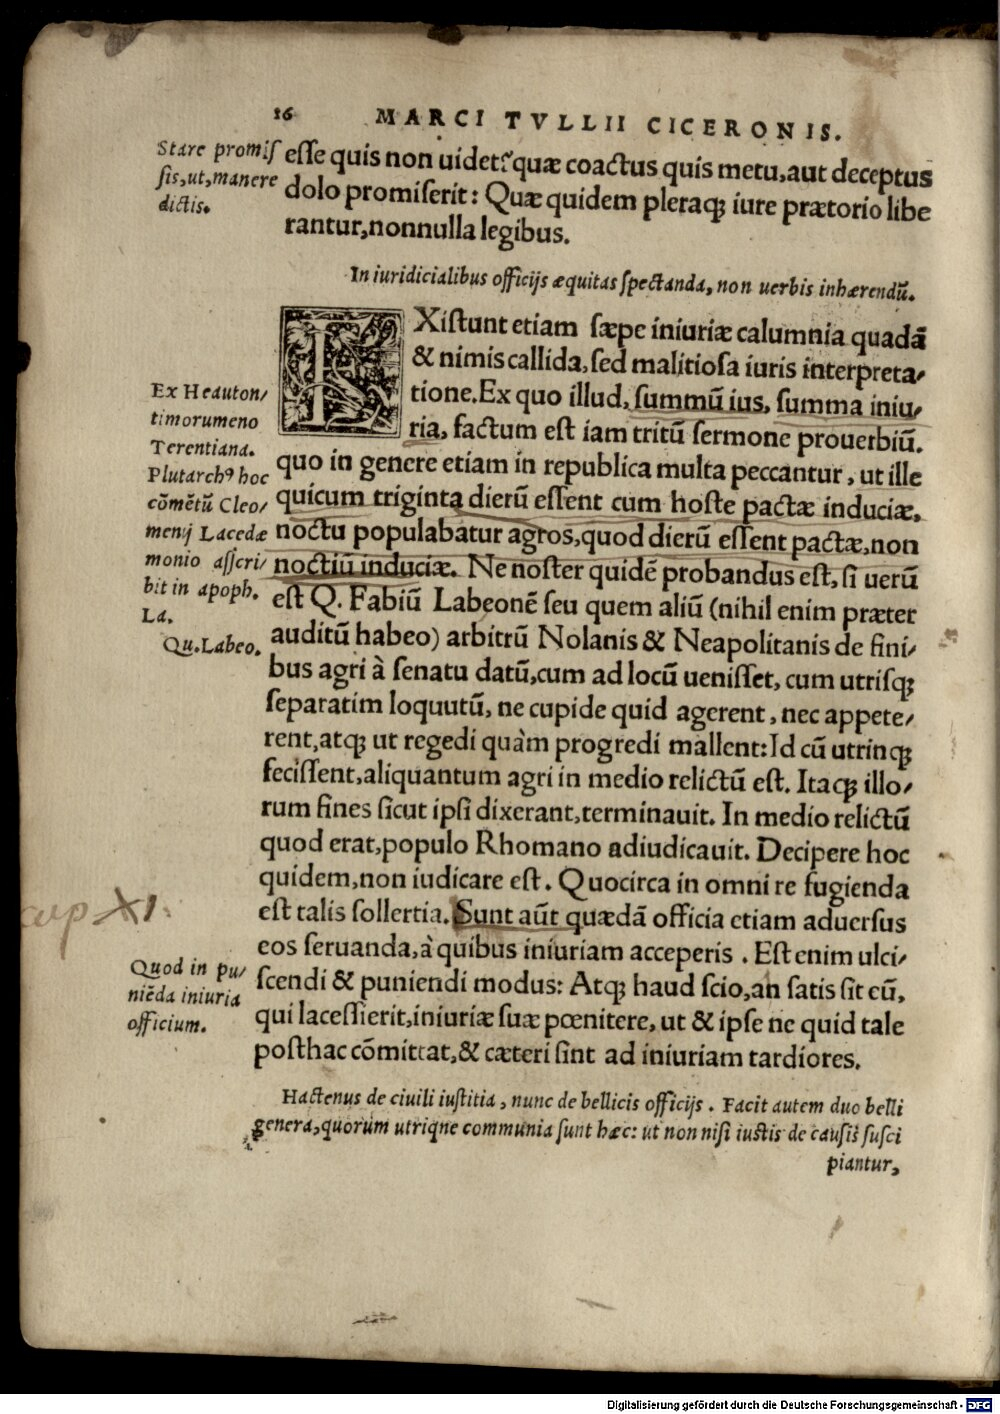 16 MARCI TVLLII CICERONIS.
Stare promiſ
ſis, ut, manere
dictis.
eſſe quis non uidet? quæ coactus quis metu, aut deceptus
dolo promiſerit: Quæ quidem pleraqꝫ iure prætorio libe
rantur, nonnulla legibus.
In iuridicialibus officijs æquitas ſpectanda, non uerbis inhærendū.
EXiſtunt etiam ſæpe iniuriæ calumnia quadā
& nimis callida, ſed malitioſa iuris interpreta⸗
tione. Ex quo illud, ſummū ius, ſumma iniu⸗
ria, factum eſt iam tritū ſermone prouerbiū.
Ex Heauton⸗
timorumeno
Terentiana.
Plutarchꝰ hoc
cōmētū Cleo⸗
menij Lacedæ
monio aſſcri⸗
bit in apoph.
La.
quo in genere etiam in republica multa peccantur, ut ille
quicum triginta dierū eſſent cum hoſte pactæ induciæ,
noctu populabatur agros, quod dierū eſſent pactæ, non
noctiū induciæ. Ne noſter quidē probandus eſt, ſi uerū
eſt Q. Fabiū Labeonē ſeu quem aliū (nihil enim præter
auditū habeo) arbitrū Nolanis & Neapolitanis de fini⸗
Qu. Labeo.
bus agri à ſenatu datū, cum ad locū ueniſſet, cum utriſqꝫ
ſeparatim loquutū, ne cupide quid agerent, nec appete⸗
rent, atqꝫ ut regedi quàm progredi mallent: Id cū utrinqꝫ
feciſſent, aliquantum agri in medio relictū eſt. Itaqꝫ illo⸗
rum fines ſicut ipſi dixerant, terminauit. In medio relictū
quod erat, populo Rhomano adiudicauit. Decipere hoc
quidem, non iudicare eſt. Quocirca in omni re fugienda
eſt talis ſollertia. Sunt aūt quædā officia etiam aduerſus
cap XI.
eos ſeruanda, à quibus iniuriam acceperis. Eſt enim ulci⸗
ſcendi & puniendi modus: Atqꝫ haud ſcio, an ſatis ſit eū,
qui laceſſierit, iniuriæ ſuæ pœnitere, ut & ipſe ne quid tale
poſthac cōmittat, & cæteri ſint ad iniuriam tardiores.
Quod in pu⸗
niēda iniuria
officium.
Hactenus de ciuili iuſtitia, nunc de bellicis officijs. Facit autem duo belli
genera, quorum utriqne communia ſunt hæc: ut non niſi iuſtis de cauſis ſuſci
piantur,
Digitalisierung gefördert durch die Deutsche Forschungsgemeinschaft - DFG